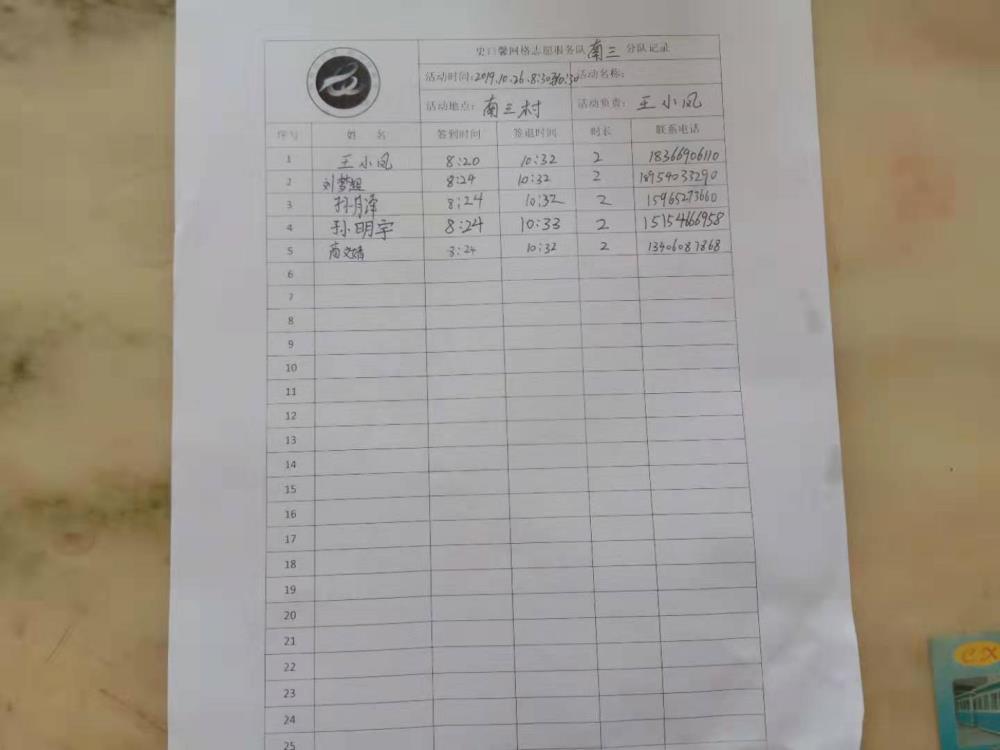 史口馨网格志愿服务队 南三 分队记录
活动时间:2019.10.26.8:30到10:30 活动名称:
活动地点: 南三村 活动负责: 王小凤
序号 姓 名 签到时间 签退时间 时长 联系电话
1 王小凤 8:20 10:32 2 18366906110
2 刘梦超 8:24 10:32 2 18954033290
3 孙月泽 8:24 10:32 2 15965273660
4 孙明宇 8:24 10:33 2 15154666958
5 商文婧 8:24 10:32 2 13406087868
6
7
8
9
10
11
12
13
14
15
16
17
18
19
20
21
22
23
24
25
CX